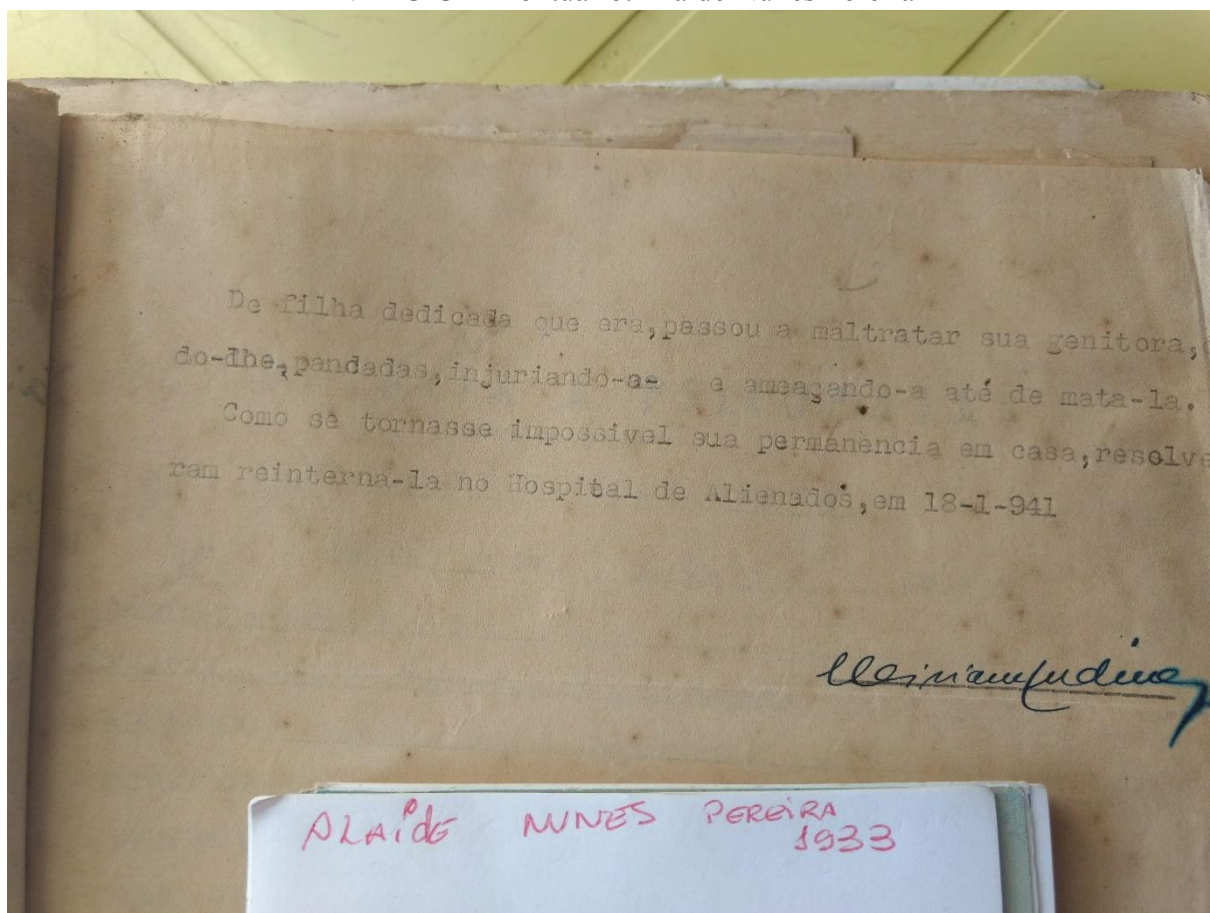 De filha dedicada que era,passou a maltratar sua genitora,
do-lhe,pandadas,injuriando-as e ameaçando-a até de mata-la.
Como se tornasse impossivel sua permanencia em casa,resolve
ram reinterna-la no Hospital de Alienados,em 18-1-941
ALAÍDE NUNES PEREIRA
1933